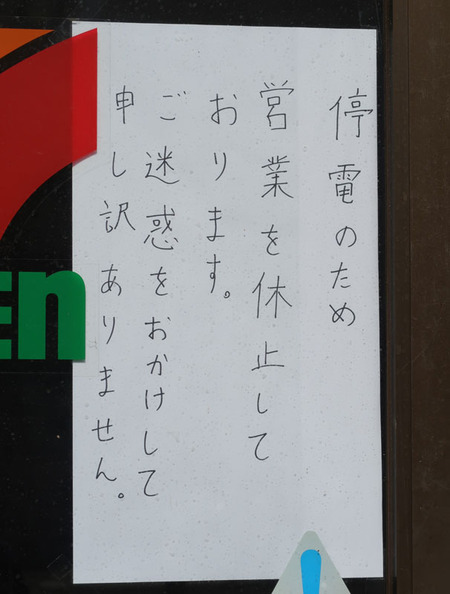 停電のため
営業を休止して
おります。
ご迷惑をおかけして
申し訳ありません。
En